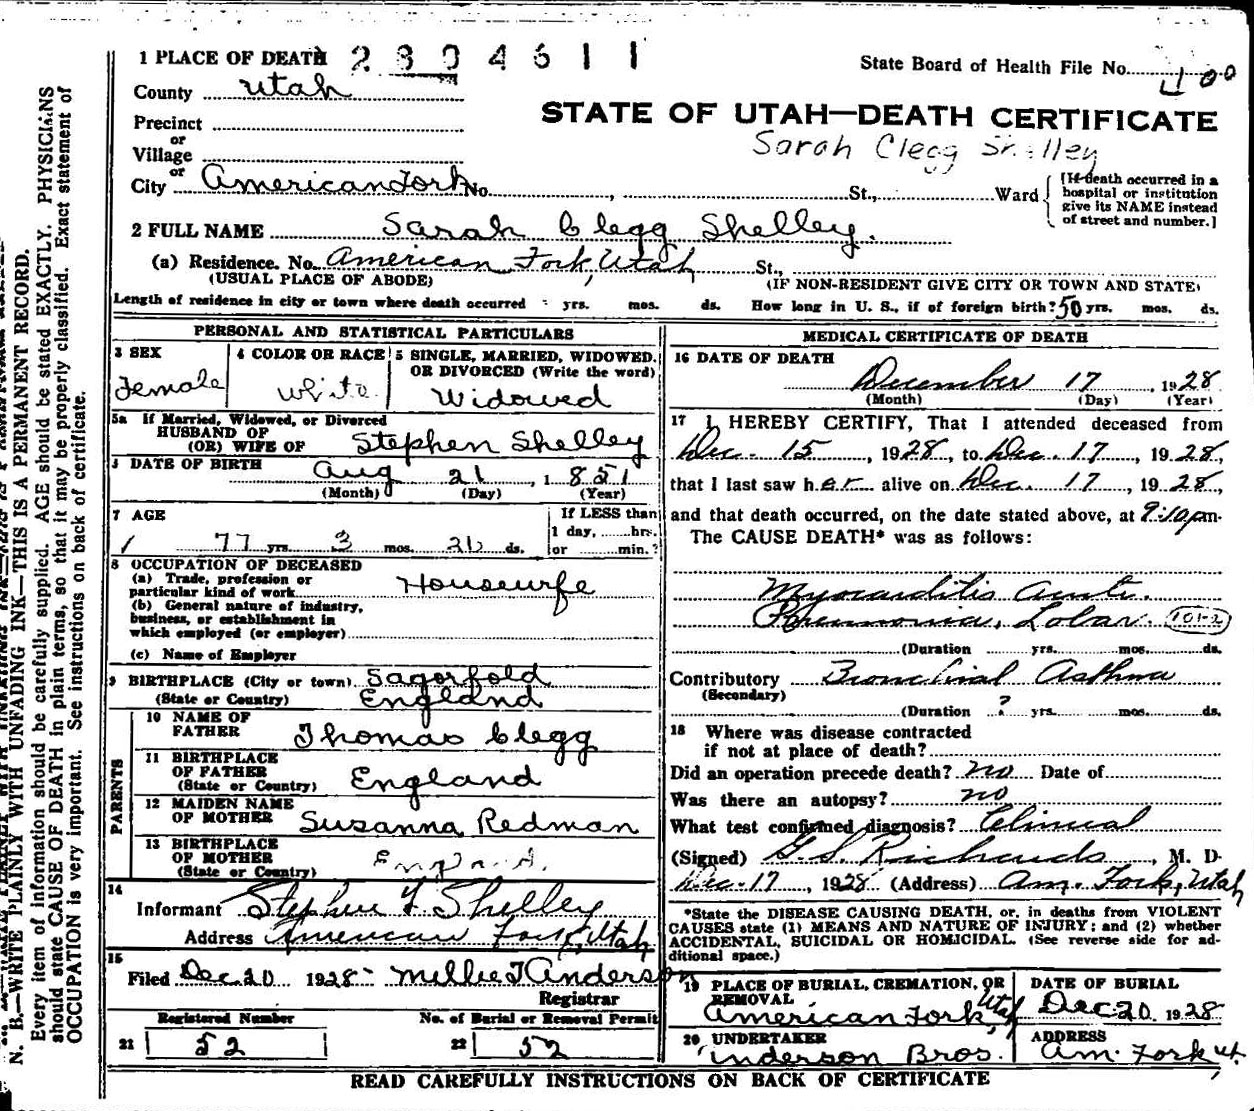 1 PLACE OF DEATH 2304611
State Board of Health File No. 400
County Utah
STATE OF UTAH—DEATH CERTIFICATE
Precinct
Sarah Clegg Shelley
or
Village
or
City American Fork No. , St., Ward
[If death occurred in a
hospital or institution
give its NAME instead
of street and number.]
2 FULL NAME Sarah Clegg Shelley.
(a) Residence. No. American Fork, Utah St.,
(USUAL PLACE OF ABODE) (IF NON-RESIDENT GIVE CITY OR TOWN AND STATE)
Length of residence in city or town where death occurred yrs. mos. ds. How long in U. S., if of foreign birth? 50 yrs. mos. ds.
PERSONAL AND STATISTICAL PARTICULARS
3 SEX
Female
4 COLOR OR RACE
White
5 SINGLE, MARRIED, WIDOWED.
OR DIVORCED (Write the word)
Widowed
5a If Married, Widowed, or Divorced
HUSBAND OF
(OR) WIFE OF Stephen Shelley
DATE OF BIRTH Aug 21, 1851
(Month) (Day) (Year)
7 AGE
77 yrs. 3 mos. 26 ds.
If LESS than
1 day, hrs.
or min.?
8 OCCUPATION OF DECEASED
(a) Trade, profession or
particular kind of work Housewife
(b) General nature of industry,
business, or establishment in
which employed (or employer)
(c) Name of Employer
9 BIRTHPLACE (City or town) Sagorfold
(State or Country) England
PARENTS
10 NAME OF
FATHER Thomas Clegg
11 BIRTHPLACE
OF FATHER
(State or Country) England
12 MAIDEN NAME
OF MOTHER Susanna Redman
13 BIRTHPLACE
OF MOTHER
(State or Country) England.
14
Informant Stephen F Shelley
Address American Fork, Utah
15
Filed Dec. 20 1928 Millie T Anderson
Registrar
Registered Number No. of Burial or Removal Permit
21 52 22 52
MEDICAL CERTIFICATE OF DEATH
16 DATE OF DEATH
December 17, 1928
(Month) (Day) (Year)
17 I HEREBY CERTIFY, That I attended deceased from
Dec. 15, 1928, to Dec. 17, 1928,
that I last saw her alive on Dec. 17, 1928,
and that death occurred, on the date stated above, at 9:10 pm.
The CAUSE DEATH* was as follows:
Myocarditis Acute.
Pneumonia, Lobar. 101-2
(Duration yrs. mos. ds.
Contributory Bronchial Asthma
(Secondary)
(Duration ? yrs. mos. ds.
18 Where was disease contracted
if not at place of death?
Did an operation precede death? no Date of
Was there an autopsy? no
What test confirmed diagnosis? Clinical
(Signed) G. S. Richards, M. D.
Dec. 17, 1928 (Address) Am. Fork, Utah
*State the DISEASE CAUSING DEATH, or, in deaths from VIOLENT
CAUSES state (1) MEANS AND NATURE OF INJURY; and (2) whether
ACCIDENTAL, SUICIDAL OR HOMICIDAL. (See reverse side for ad-
ditional space.)
19 PLACE OF BURIAL, CREMATION, OR
REMOVAL
American Fork, Utah
DATE OF BURIAL
Dec 20. 1928
20 UNDERTAKER
Anderson Bros.
ADDRESS
Am. Fork Ut.
READ CAREFULLY INSTRUCTIONS ON BACK OF CERTIFICATE
N. B.—WRITE PLAINLY WITH UNFADING INK—THIS IS A PERMANENT RECORD.
Every item of information should be carefully supplied. AGE should be stated EXACTLY. PHYSICIANS
should state CAUSE OF DEATH in plain terms, so that it may be properly classified. Exact statement of
OCCUPATION is very important. See instructions on back of certificate.